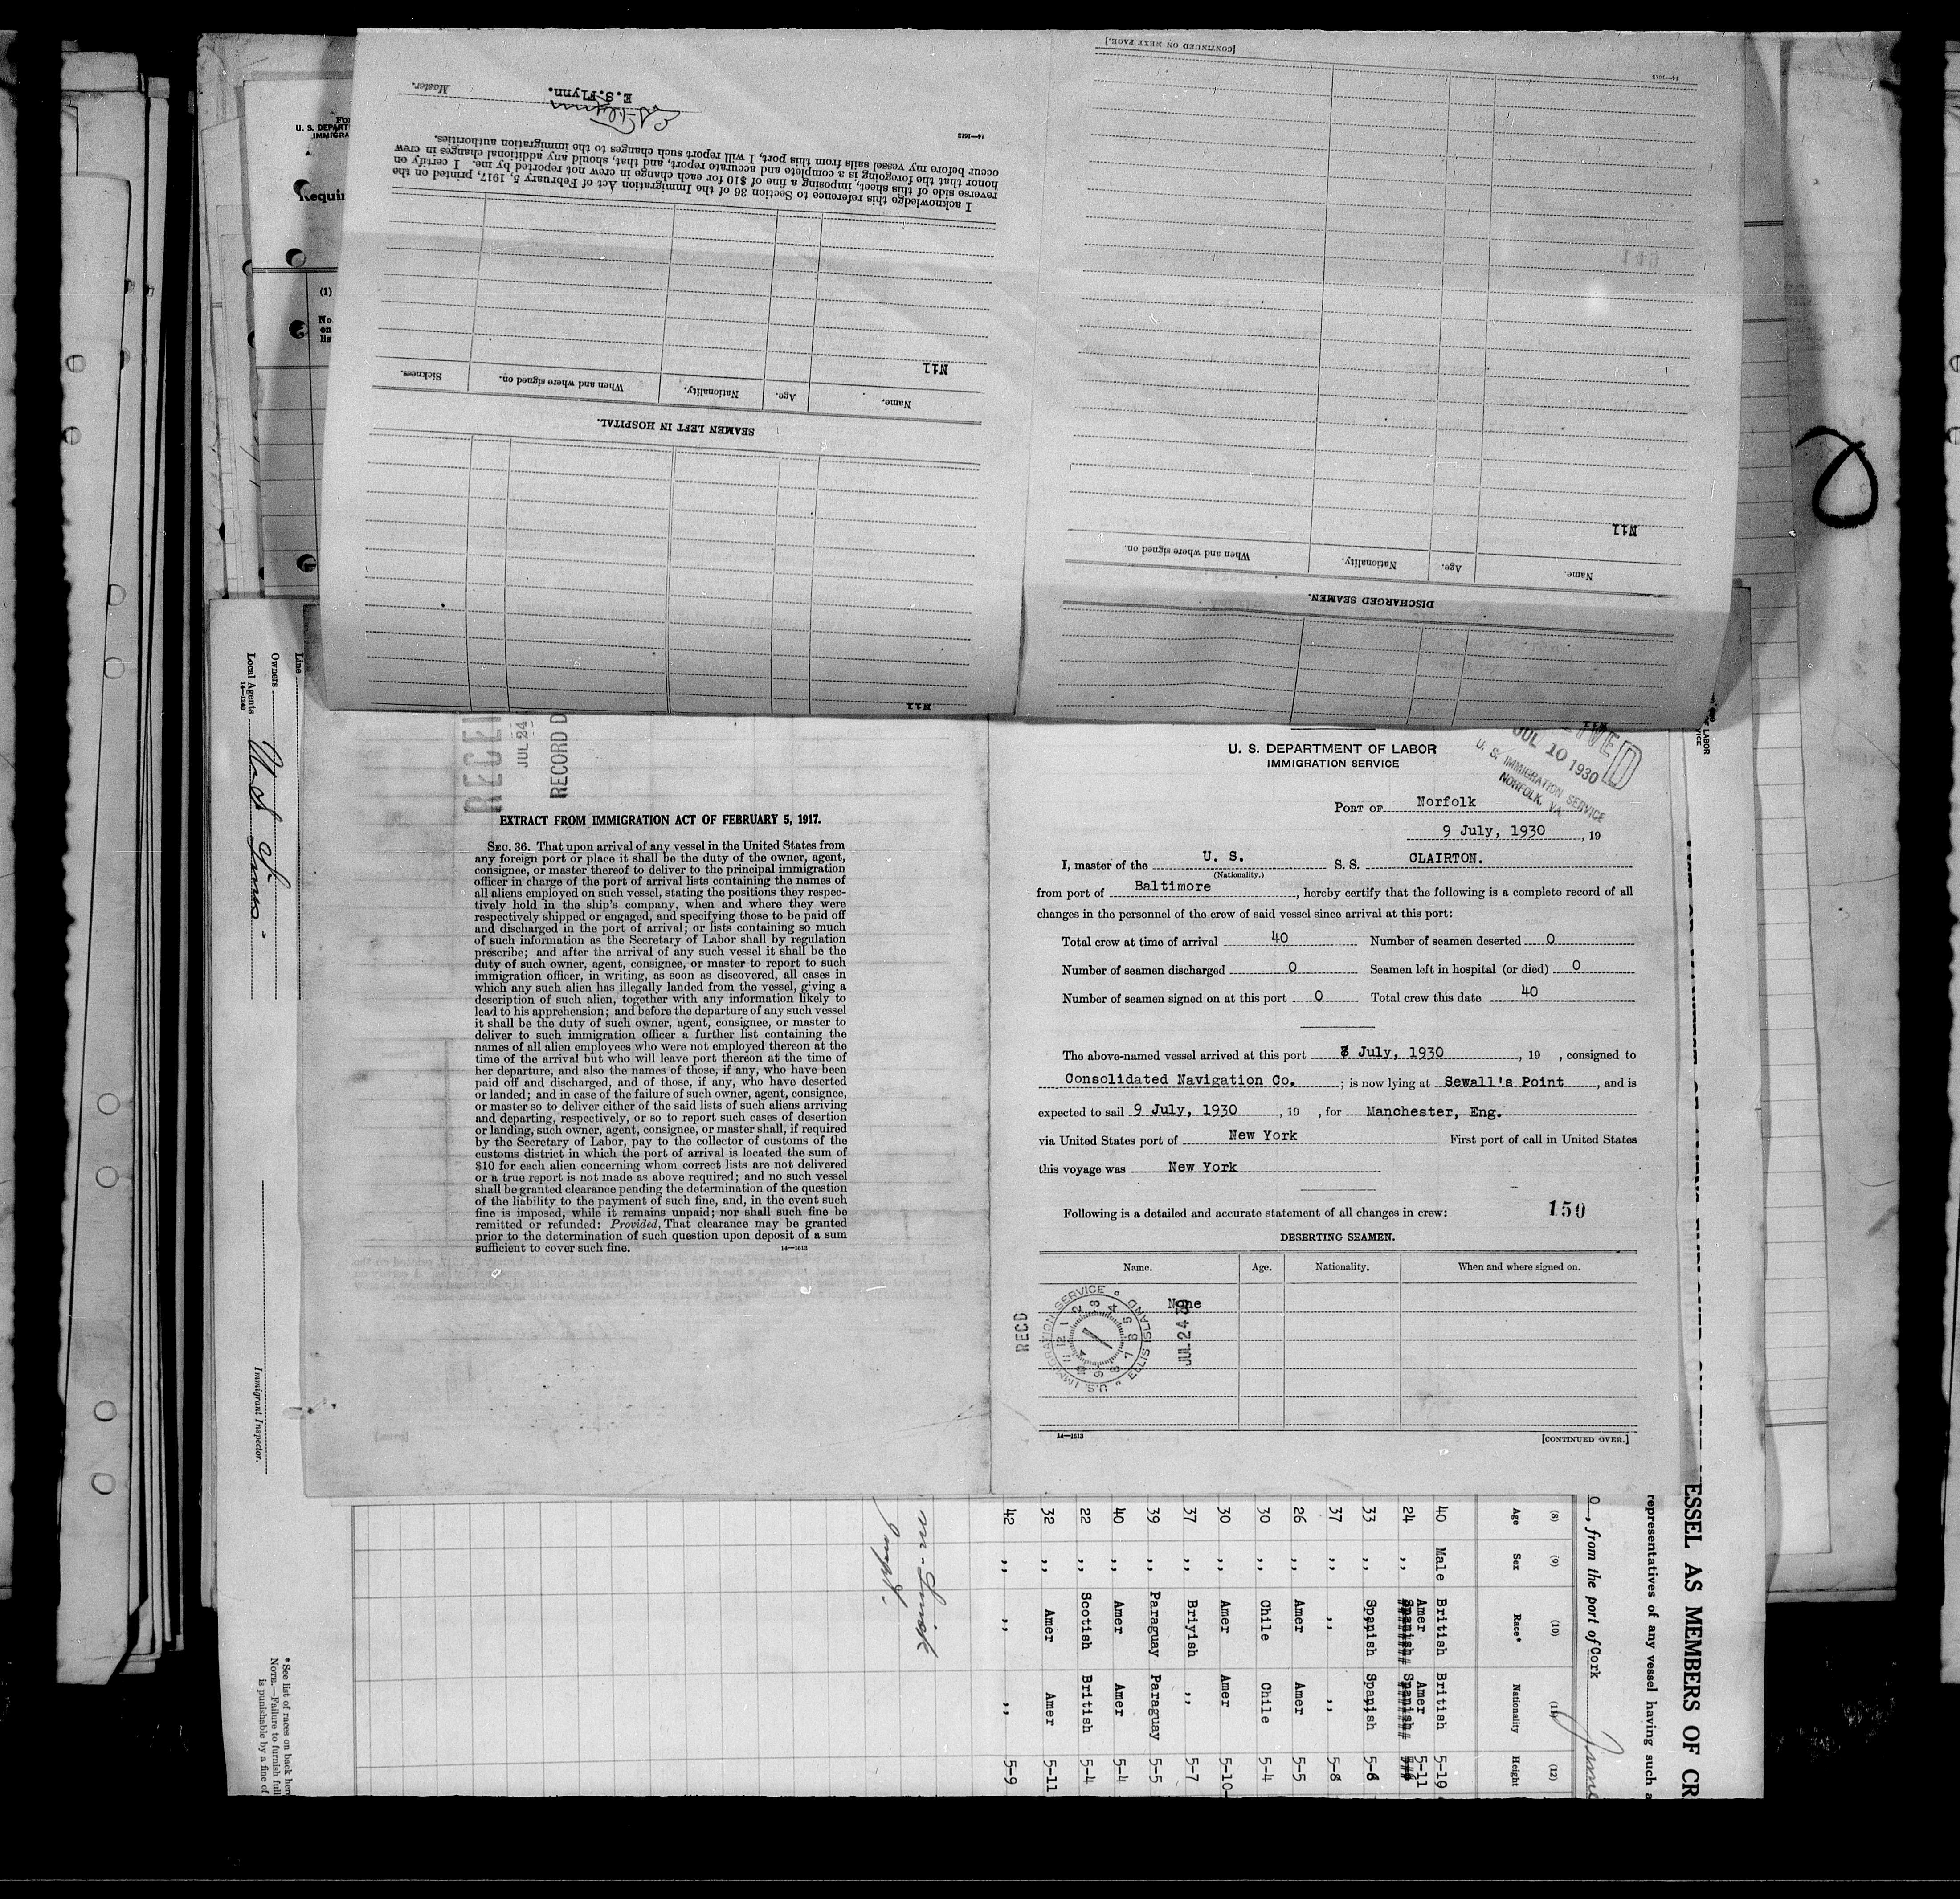 [CONTINUED ON NEXT PAGE.]
14—1613
E. S. Flynn.
Master.
14—1613
I acknowledge this reference to Section 36 of the Immigration Act of February 5, 1917, printed on the
reverse side of this sheet, imposing a fine of $10 for each change in crew not reported by me. I certify on
honor that the foregoing is a complete and accurate report, and that, should any additional changes in crew
occur before my vessel sails from this port, I will report such changes to the immigration authorities.
Nil
Name. Age. Nationality. When and where signed on. Sickness.
SEAMEN LEFT IN HOSPITAL.
Nil
Nil
Name. Age. Nationality. When and where signed on.
DISCHARGED SEAMEN.
Nil
U. S. DEPART
IMMIGRA
Requir
(1)
No
on
lis
Line
Owners
Local Agents
14—1240
Immigrant Inspector.
* See list of races on back her
NOTE.—Failure to furnish full
is punishable by a fine of
RECEI
JUL 24
RECORD D
EXTRACT FROM IMMIGRATION ACT OF FEBRUARY 5, 1917.
SEC. 36. That upon arrival of any vessel in the United States from
any foreign port or place it shall be the duty of the owner, agent,
consignee, or master thereof to deliver to the principal immigration
officer in charge of the port of arrival lists containing the names of
all aliens employed on such vessel, stating the positions they respec-
tively hold in the ship's company, when and where they were
respectively shipped or engaged, and specifying those to be paid off
and discharged in the port of arrival; or lists containing so much
of such information as the Secretary of Labor shall by regulation
prescribe; and after the arrival of any such vessel it shall be the
duty of such owner, agent, consignee, or master to report to such
immigration officer, in writing, as soon as discovered, all cases in
which any such alien has illegally landed from the vessel, giving a
description of such alien, together with any information likely to
lead to his apprehension; and before the departure of any such vessel
it shall be the duty of such owner, agent, consignee, or master to
deliver to such immigration officer a further list containing the
names of all alien employees who were not employed thereon at the
time of the arrival but who will leave port thereon at the time of
her departure, and also the names of those, if any, who have been
paid off and discharged, and of those, if any, who have deserted
or landed; and in case of the failure of such owner, agent, consignee,
or master so to deliver either of the said lists of such aliens arriving
and departing, respectively, or so to report such cases of desertion
or landing, such owner, agent, consignee, or master shall, if required
by the Secretary of Labor, pay to the collector of customs of the
customs district in which the port of arrival is located the sum of
$10 for each alien concerning whom correct lists are not delivered
or a true report is not made as above required; and no such vessel
shall be granted clearance pending the determination of the question
of the liability to the payment of such fine, and, in the event such
fine is imposed, while it remains unpaid; nor shall such fine be
remitted or refunded: Provided, That clearance may be granted
prior to the determination of such question upon deposit of a sum
sufficient to cover such fine.
14—1613
U. S. DEPARTMENT OF LABOR
IMMIGRATION SERVICE
IVED
JUL 10 1930
U. S. IMMIGRATION SERVICE
NORFOLK, VA.
PORT OF Norfolk
9 July, 1930, 19
I, master of the U. S. S. S. CLAIRTON.
(Nationality.)
from port of Baltimore, hereby certify that the following is a complete record of all
changes in the personnel of the crew of said vessel since arrival at this port:
Total crew at time of arrival 40 Number of seamen deserted 0
Number of seamen discharged 0 Seamen left in hospital (or died) 0
Number of seamen signed on at this port 0 Total crew this date 40
The above-named vessel arrived at this port 8 July, 1930, 19 , consigned to
Consolidated Navigation Co. ; is now lying at Sewall's Point, and is
expected to sail 9 July, 1930, 19 , for Manchester, Eng.
via United States port of New York First port of call in United States
this voyage was New York
150
Following is a detailed and accurate statement of all changes in crew:
DESERTING SEAMEN.
Name. Age. Nationality. When and where signed on.
None
RECD
U.S. IMMIGRATION SERVICE
ELLIS ISLAND
JUL 24 30
14—1613
[CONTINUED OVER.]
ESSEL AS MEMBERS OF CR
representatives of any vessel having such a
0, from the port of Cork
(8) (9) (10) (11) (12)
Age Sex Race* Nationality Height
40 Male British British 5-19
24 ,, Amer Amer 5-11
33 ,, Spanish Spanish 5-6
37 ,, ,, ,, 5-8
26 ,, Amer Amer 5-5
30 ,, Chile Chile 5-4
30 ,, Amer Amer 5-10
37 ,, Briyish ,, 5-7
39 ,, Paraguay Paraguay 5-5
40 ,, Amer Amer 5-4
22 ,, Scotish British 5-4
32 ,, Amer Amer 5-11
42 ,, ,, ,, 5-9